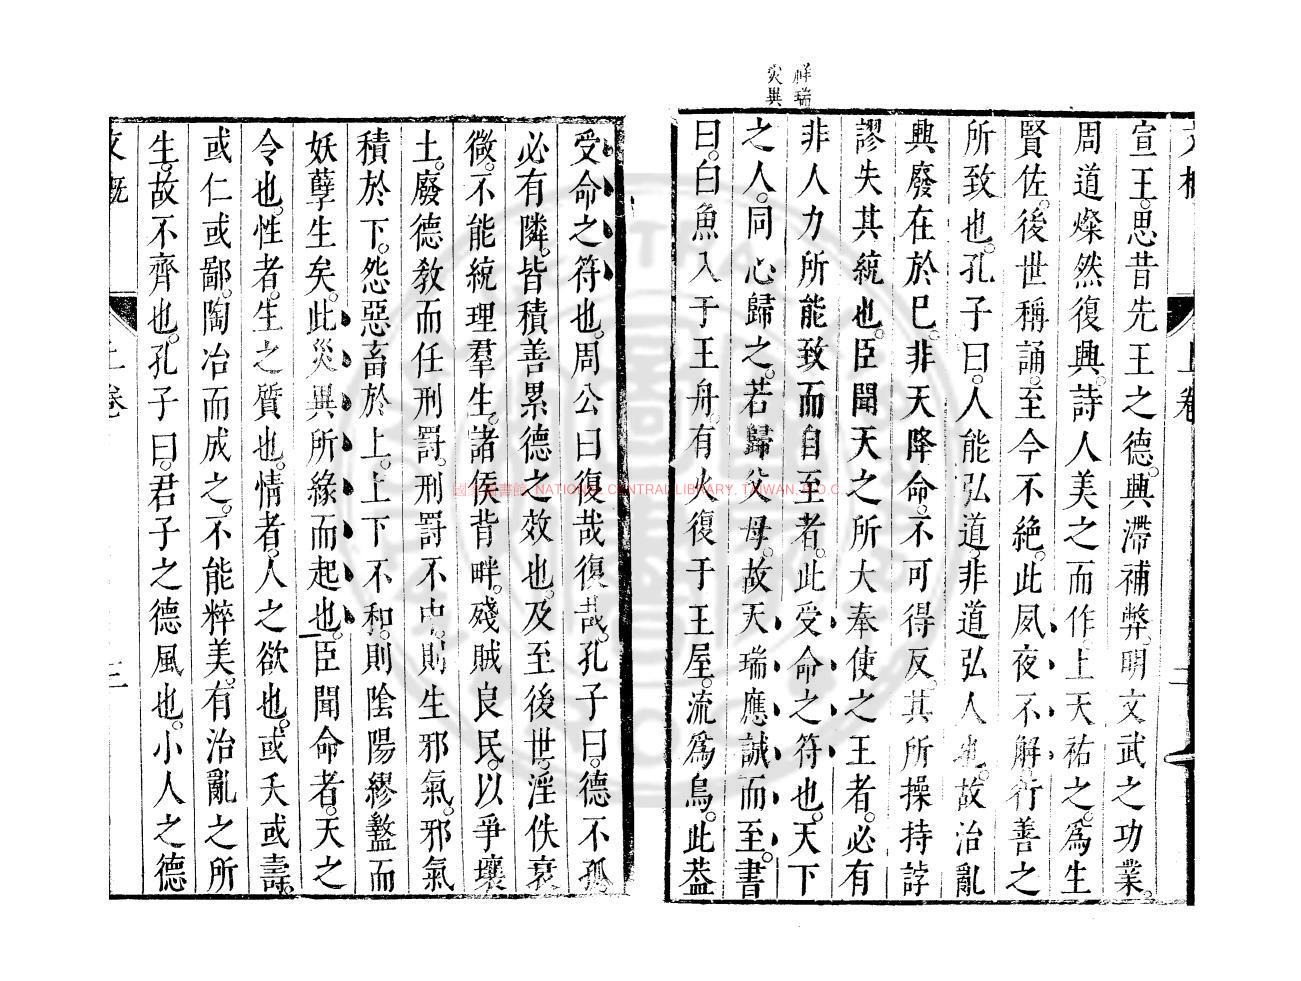 祥瑞
災異
上卷
宣王。思昔先王之德。興滯補弊。明文武之功業。
周道燦然復興。詩人美之而作上天祐之。爲生
賢佐。後世稱誦。至今不絕。此夙夜不解行善之
所致也。孔子曰。人能弘道。非道弘人也。故治亂
興廢在於巳。非天降命。不可得反。其所操持誖
謬失其統也。臣聞天之所大奉使之王者。必有
非人力所能致而自至者。此受命之符也。天下
之人。同心歸之。若歸父母。故天瑞應誠而至。書
曰。白魚入于王舟。有火復于王屋。流爲烏。此葢
受命之符也。周公曰復哉復哉。孔子曰。德不孤。
必有隣。皆積善累德之效也。及至後世。淫佚衰
微。不能統理羣生。諸侯背畔。殘賊良民。以爭壤
土。廢德敎而任刑罸。刑罸不中。則生邪氣。邪氣
積於下。怨惡畜於上。上下不和。則陰陽繆盭而
妖孽生矣。此災異所緣而起也。臣聞命者。天之
令也。性者。生之質也。情者。人之欲也。或夭或壽。
或仁或鄙。陶冶而成之。不能粹美。有治亂之所
生。故不齊也。孔子曰。君子之德風也。小人之德
文概
上卷
三
國家圖書館 NATIONAL CENTRAL LIBRARY, TAIWAN, R.O.C